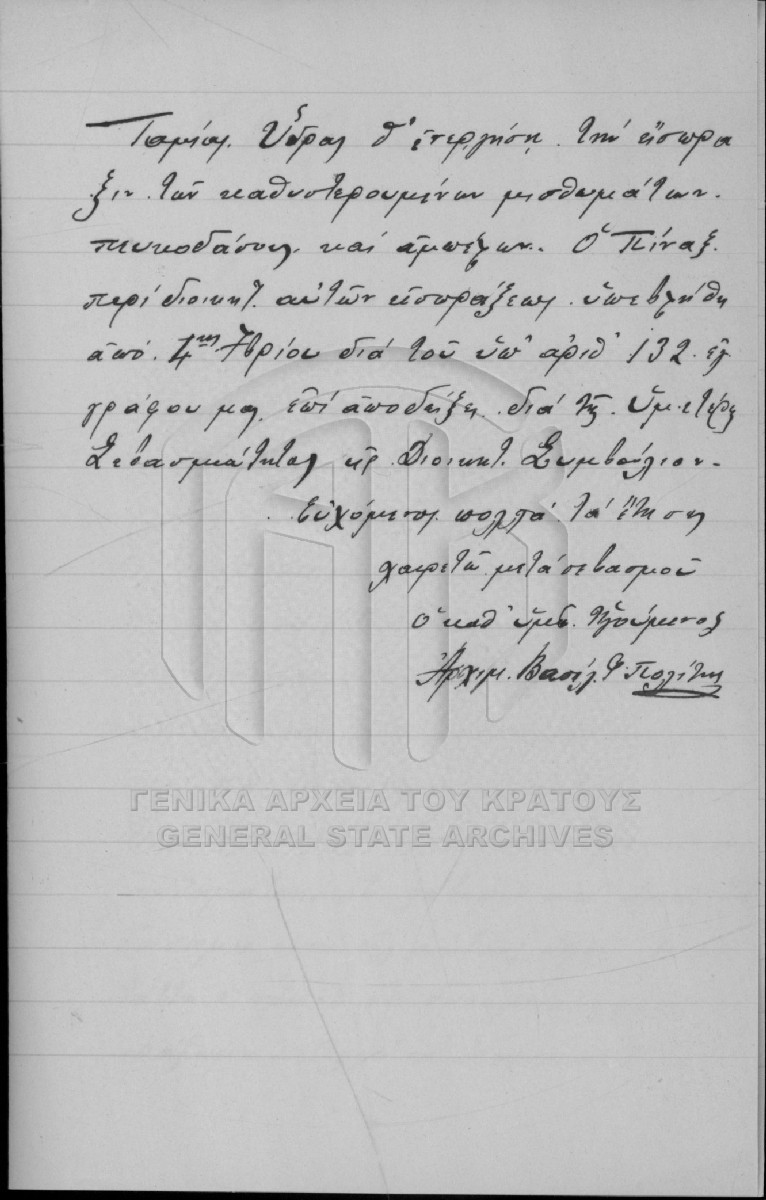 Ταμίας Ὕδρας θ' ἐνεργήσῃ τὴν εἴσπρα
ξιν τῶν καθυστερουμένων μισθωμάτων
πευκοδάσους καὶ ἀμπέλων. Ὁ Πίναξ
περὶ διοικητ. αὐτῶν εἰσπράξεως ὑπεβλήθη
ἀπὸ 4ης 7βρίου διὰ τοῦ ὑπ' ἀριθ 132 ἐγ
γράφου μας ἐπὶ ἀποδείξει διὰ τῆς ὑμετέρας
Σεβασμιότητος εἰς Διοικητ. Συμβούλιον.
Εὐχόμενος πολλὰ τὰ ἔτη σας
χαιρετῶ μετὰ σεβασμοῦ
Ὁ καθ' ὑμᾶς Ἡγούμενος
Ἀρχιμ. Βασίλ. Φ. Πολίτης
ΓΕΝΙΚΑ ΑΡΧΕΙΑ ΤΟΥ ΚΡΑΤΟΥΣ
GENERAL STATE ARCHIVES